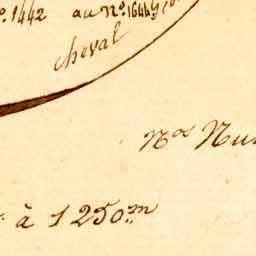 º. 1442 au Nº. 1644
cheval
Nos Nu
à 1250.m